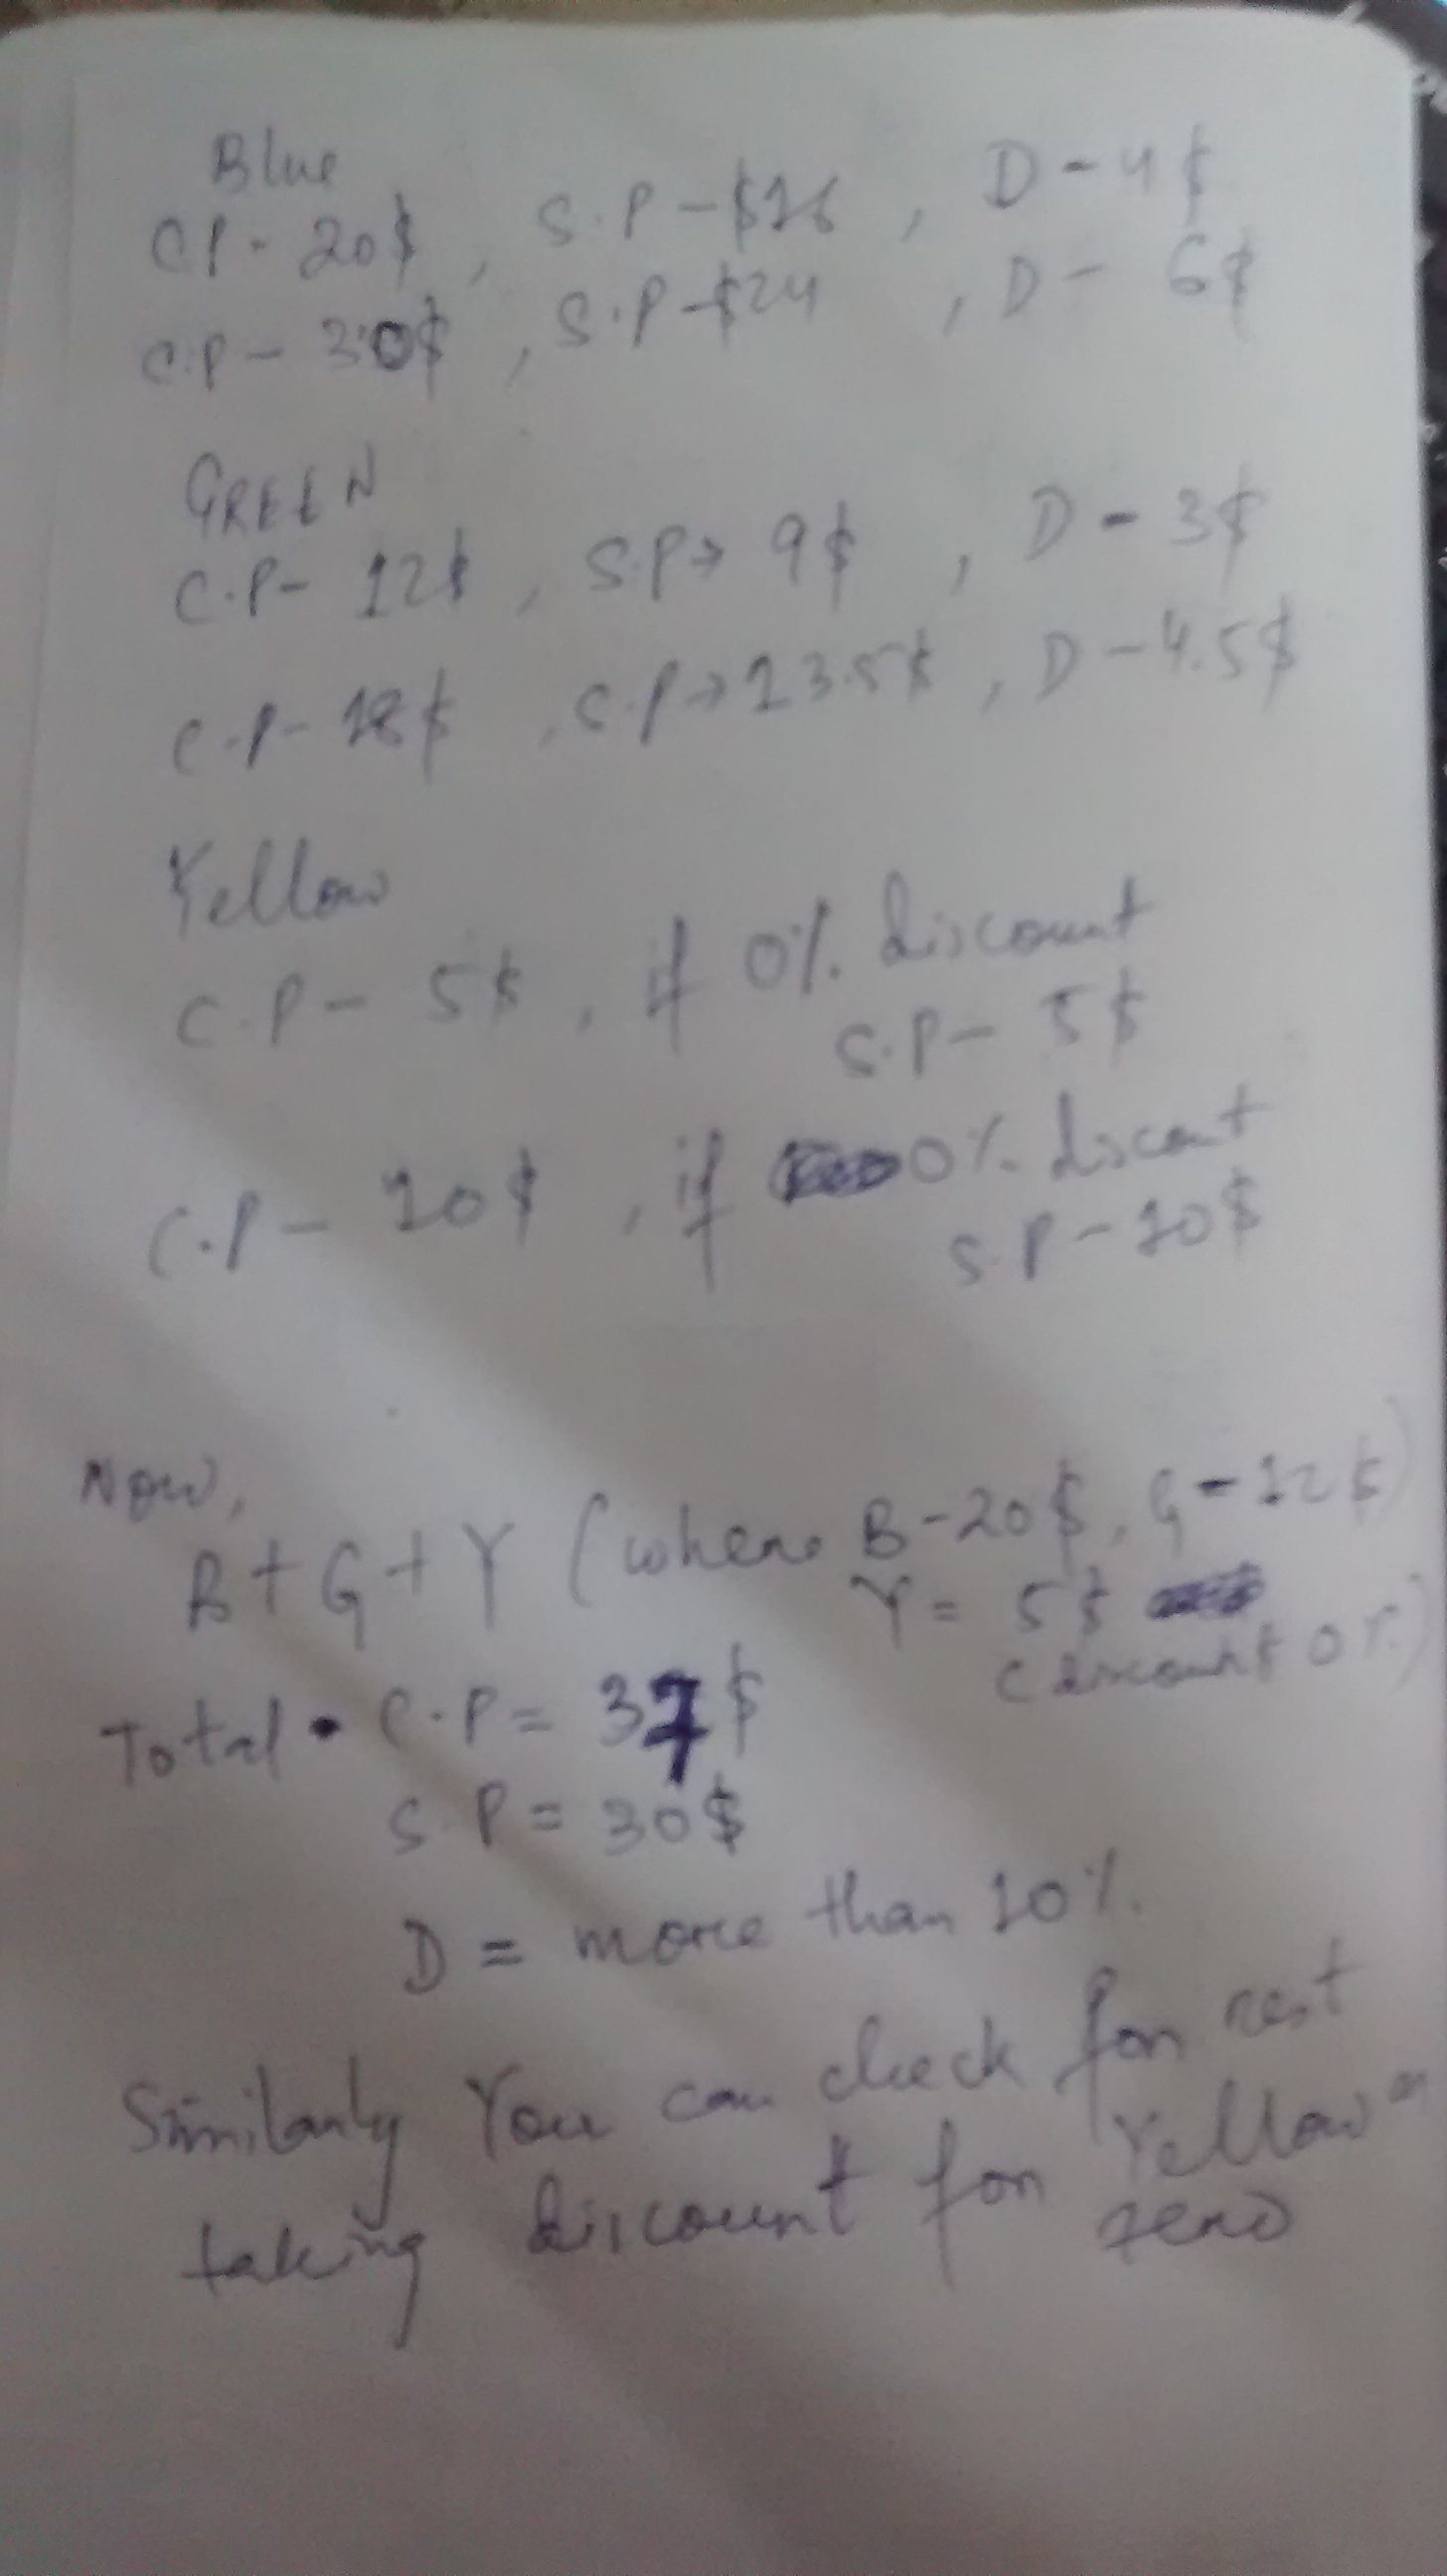 Blue
CP - 20$, S.P - $16, D - 4$
C.P - 30$, S.P - $24, D - 6$
GREEN
C.P - 12$, S.P → 9$, D - 3$
C.P - 18$, S.P → 13.5$, D - 4.5$
Yellow
C.P - 5$, if 0% discount
S.P - 5$
C.P - 10$, if 0% discont
S.P - 10$
Now,
B + G + Y (where B - 20$, G - 12$)
Y = 5$
(discount 0%)
Total C.P = 37$
S.P = 30$
D = more than 10%.
Similarly You can check for rest
taking discount for Yellow as
zero